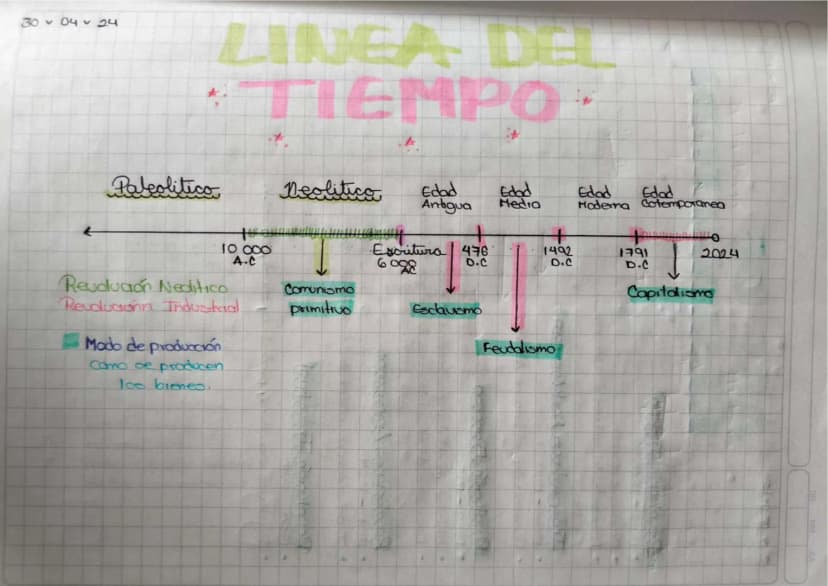 30 - 04 - 24
LINEA DEL
TIEMPO
Paleolitico
Neolitico
Edad
Antigua
Edad
Media
Edad
Moderna
Edad
Cotemporanea
10.000
A.C
Escritura
6000
AC
476
D.C
1492
D.C
1791
D.C
2024
Revolución Neolitico
Revolución Industrial
Comunismo
primitivo
Esclavismo
Feudalismo
Capitalismo
Modo de producción
Como se producen
los bienes.